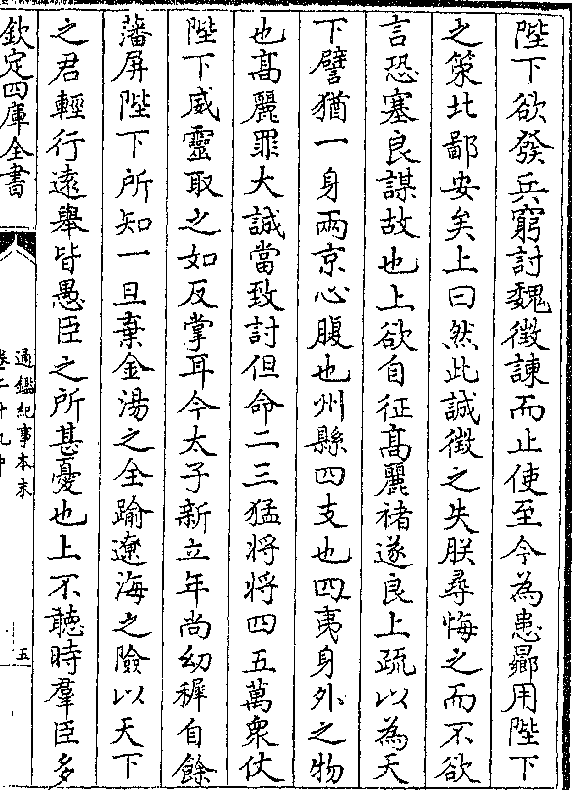 陛下欲發兵窮討魏徵諫而止使至今為患曏用陛下
之策北鄙安矣上曰然此誠徵之失朕尋悔之而不欲
言恐塞良謀故也上欲自征髙麗禇遂良上疏以為天
下譬猶一身兩京心腹也州縣四支也四夷身外之物
也髙麗罪大誠當致討但命二三猛將將四五萬衆仗
陛下威靈取之如反掌耳今太子新立年尚幼穉自餘
藩屏陛下所知一旦棄金湯之全踰遼海之險以天下
之君輕行逺舉皆愚臣之所甚憂也上不聽時羣臣多
欽定四庫全書
通鑑紀事本末
卷二十九中
五